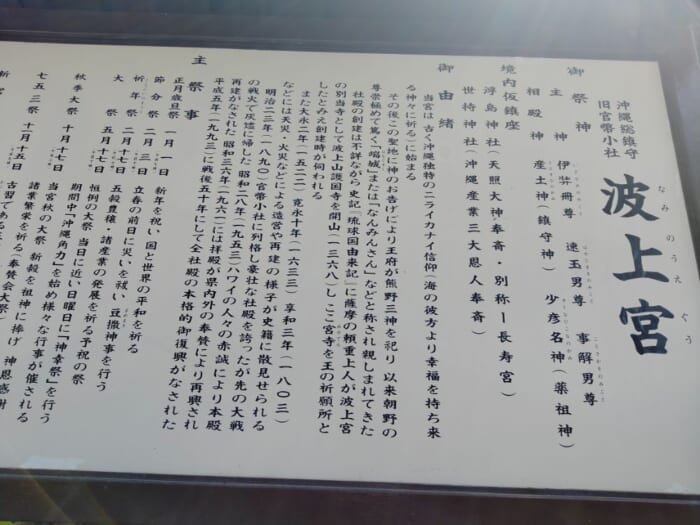 沖縄総鎮守
旧官幣小社
波上宮
なみのうえぐう
御祭神
主神 伊弉冊尊 速玉男尊 事解男尊
相殿神 産土神(鎮守神) 少彦名神(薬祖神)
境内仮鎮座
浮島神社(天照大神奉斎・別称ー長寿宮)
世持神社(沖縄産業三大恩人奉斎)
御由緒
当宮は古く沖縄独特のニライカナイ信仰(海の彼方より幸福を持ち来
る神々に祈る)に始まる
その後この聖地に神のお告げにより王府が熊野三神を祀り 以来朝野の
尊崇極めて篤く「端城」または「なんみんさん」などと称され親しまれてきた
社殿の創建は不詳ながら史記『琉球国由来記』に薩摩の頼重上人が波上宮
の別当寺として波上山護国寺を開山(一三六八)し ここ宮寺を王の祈願所と
したとみえ創建時が伺われる
また大永二年(一五二二) 寛永十年(一六三三) 享和三年(一八〇三)
などには天災・火災などによる造営や再建の様子が史籍に散見せられる
明治二三年(一八九〇)官幣小社に列格し豪壮な社殿を誇ったが先の大戦
の戦火で灰燼に帰した 昭和二八年(一九五三)ハワイの人々の赤誠により本殿
再建がなされ 昭和三六年(一九六一)には拝殿が県内外の奉賛により再興され
平成五年(一九九三)に戦後五十年にして全社殿の本格的御復興がなされた
主祭事
正月歳旦祭 一月一日 新年を祝い 国と世界の平和を祈る
節分祭 二月三日 立春の前日に災いを祓い 豆撒神事を行う
祈年祭 二月十七日 五穀豊穣・諸産業の発展を祈る予祝の祭
大祭 五月十七日 恒例の大祭 当日に近い日曜に「神幸祭」を行う
期間中「沖縄角力」を始め様々な行事が催される
秋季大祭 十月十七日 当宮秋の大祭 新穀を祖神に捧げ 神恩感謝
諸業繁栄を祈る(奉賛会大祭)
七五三祭 十一月十五日